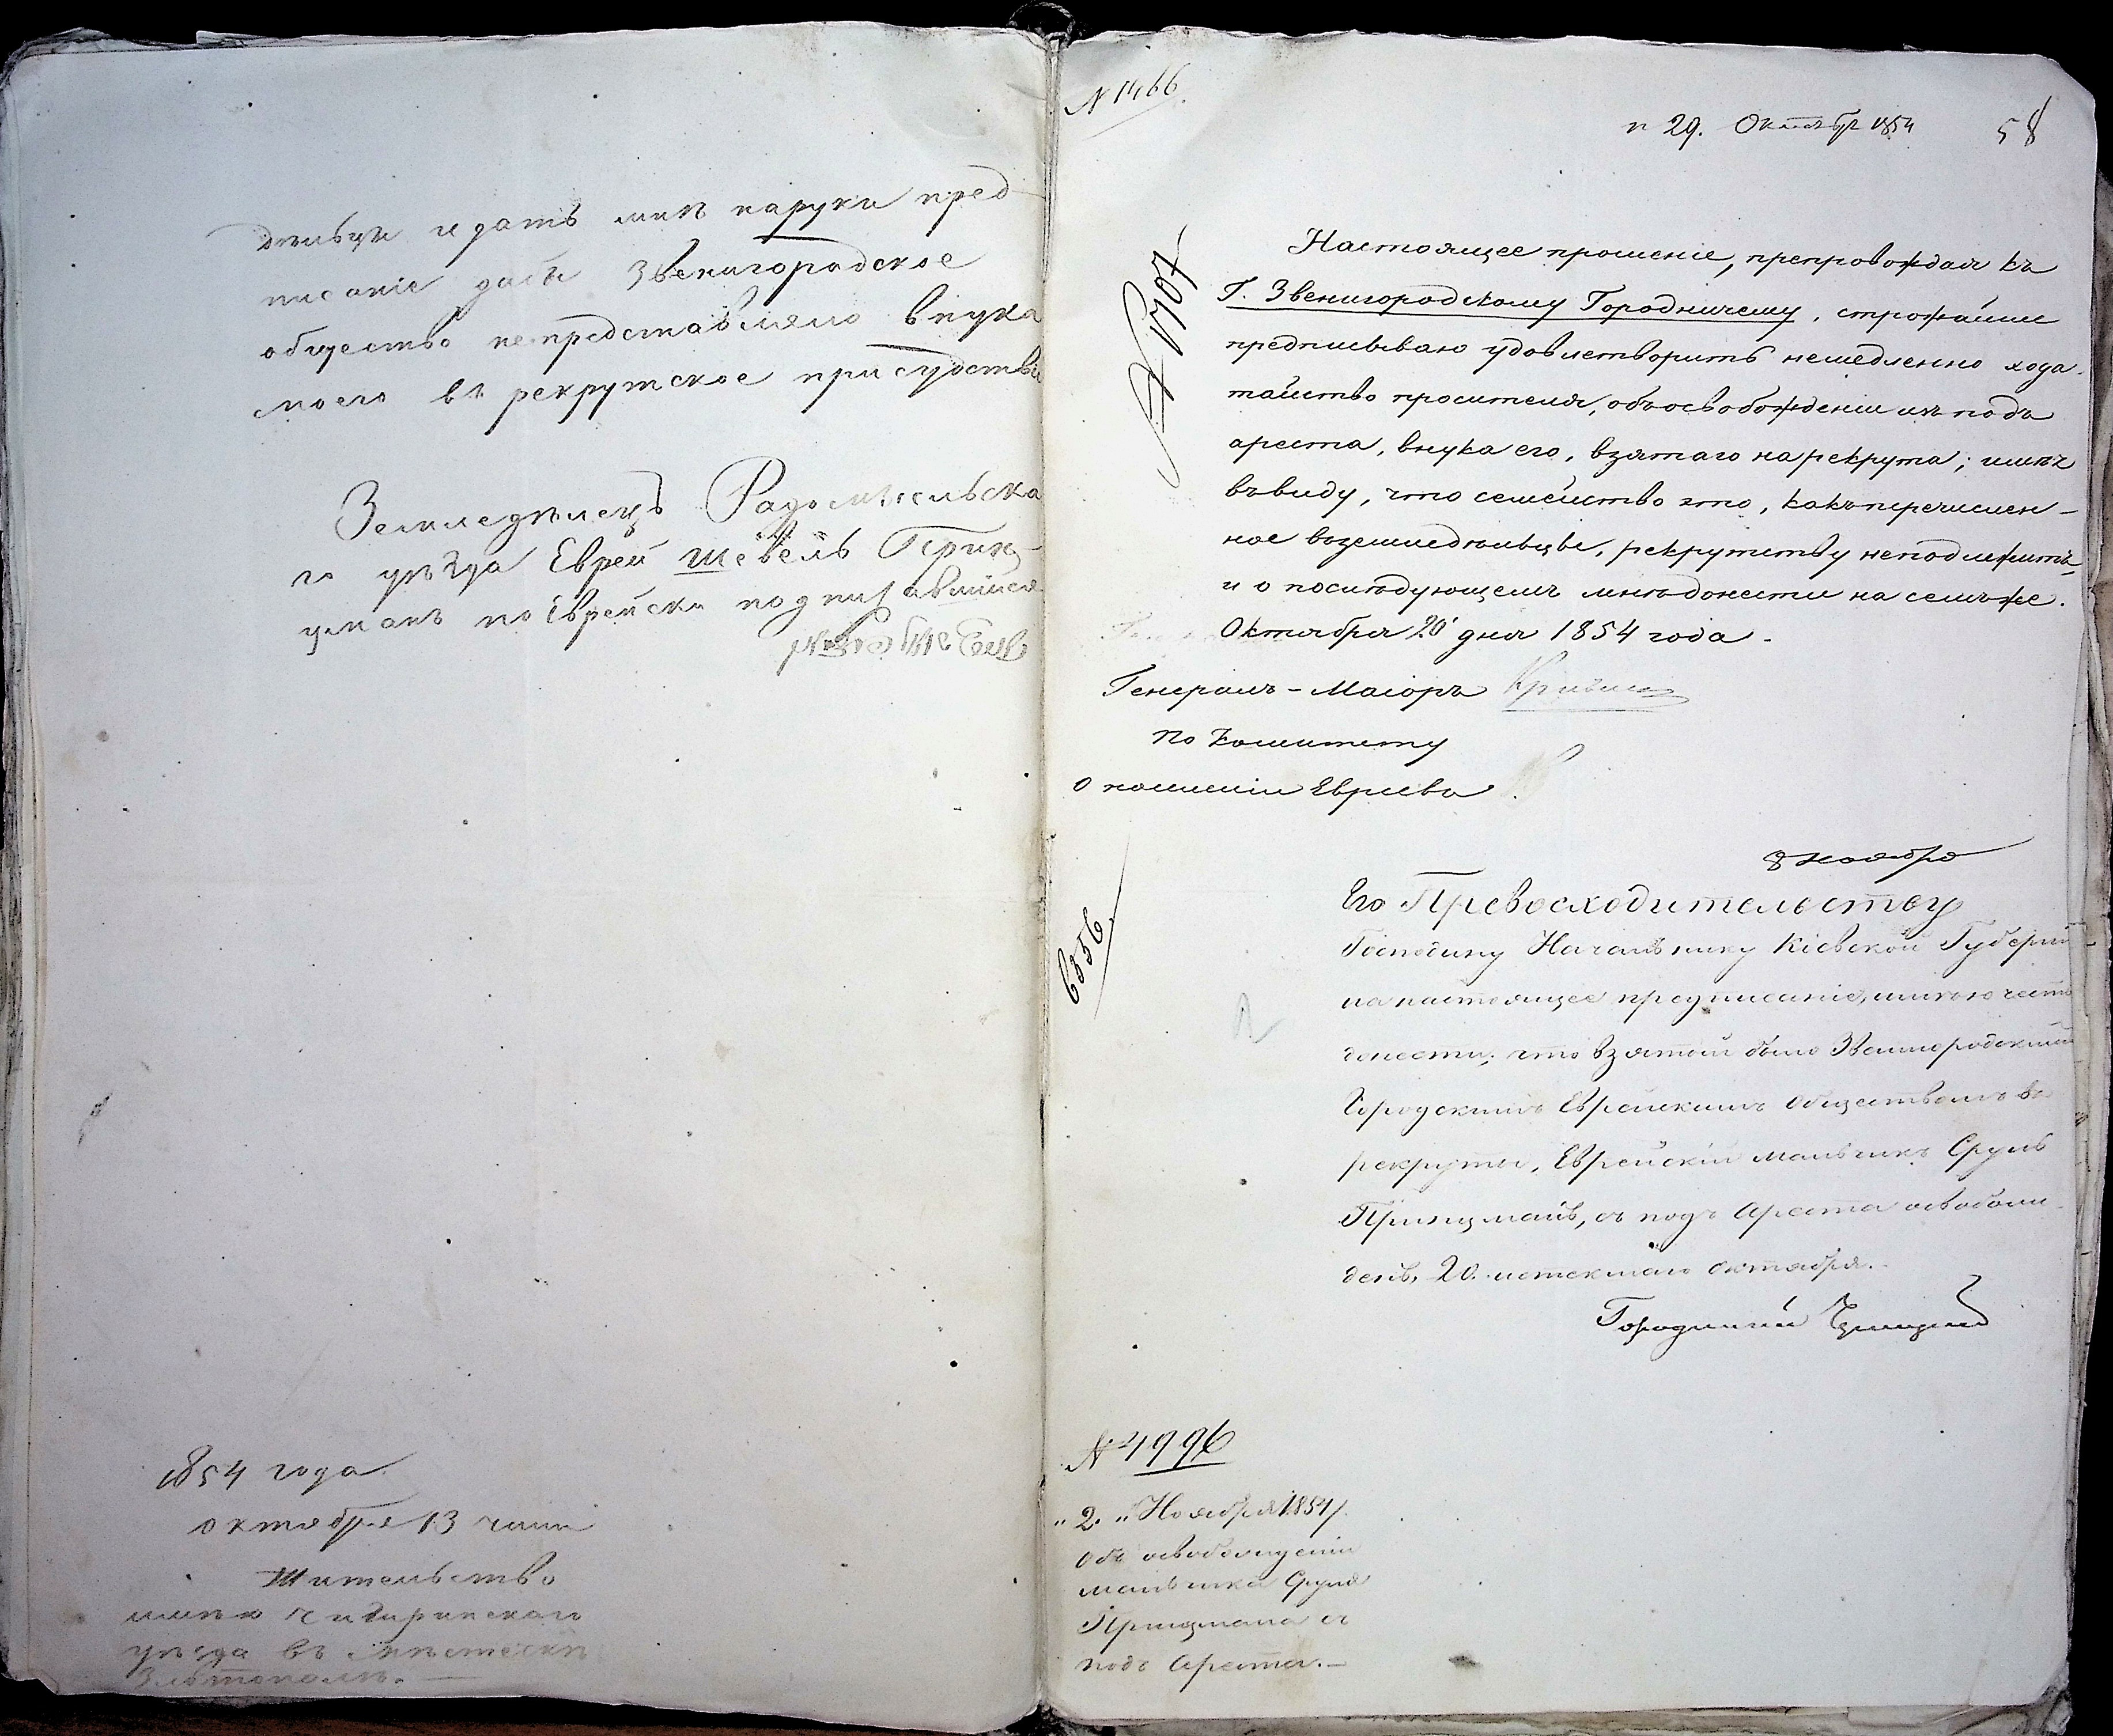 дѣльцы и дать мнѣ наруки пред-
писаніе дабы Звенигородское
общество непредставляло внука
моего въ рекрутское присудствіе
Земледѣлецъ Радомысльска
го уѣзда Еврей Шевель Принц-
уманъ по Еврейски подписавшійся
1854 года
октября 13 числа
Жительство
имѣю Чигиринскаго
уѣзда въ мѣстечкѣ
Златополѣ.
N 1466
п 29. Октября 1854
58
N 1707
Настоящее прошеніе, препровождая къ
Г. Звенигородскому Городничему, строжайше
предписываю удовлетворить немедленно хода-
тайство просителя, объ освобожденіи изъ подъ
ареста, внука его, взятаго на рекрута; имѣя
въ виду, что семейство это, какъ перечислен-
ное въ земледѣльцы, рекрутству неподлежитъ,
и о послѣдующемъ мнѣ донести на семъ же.
Октября 20 дня 1854 года.
Генералъ-Маіоръ
По Комитету
о Евреевъ
8 ноября
6556.
Его Превосходительству
Господину Начальнику Кіевской Губерніи
на настоящее предписаніе, имѣю честь
донести; что взятый было Звенигородскимъ
Городскимъ Еврейскимъ Обществомъ въ
рекруты, Еврейскій мальчикъ Сруль
Принцманъ, съ подъ Ареста освобож-
денъ, 20. истекшаго октября.
Городничій
N 4996
"2." Ноября 1854.
Объ освобожденіи
мальчика Сруля
Принцмана съ
подъ Ареста.